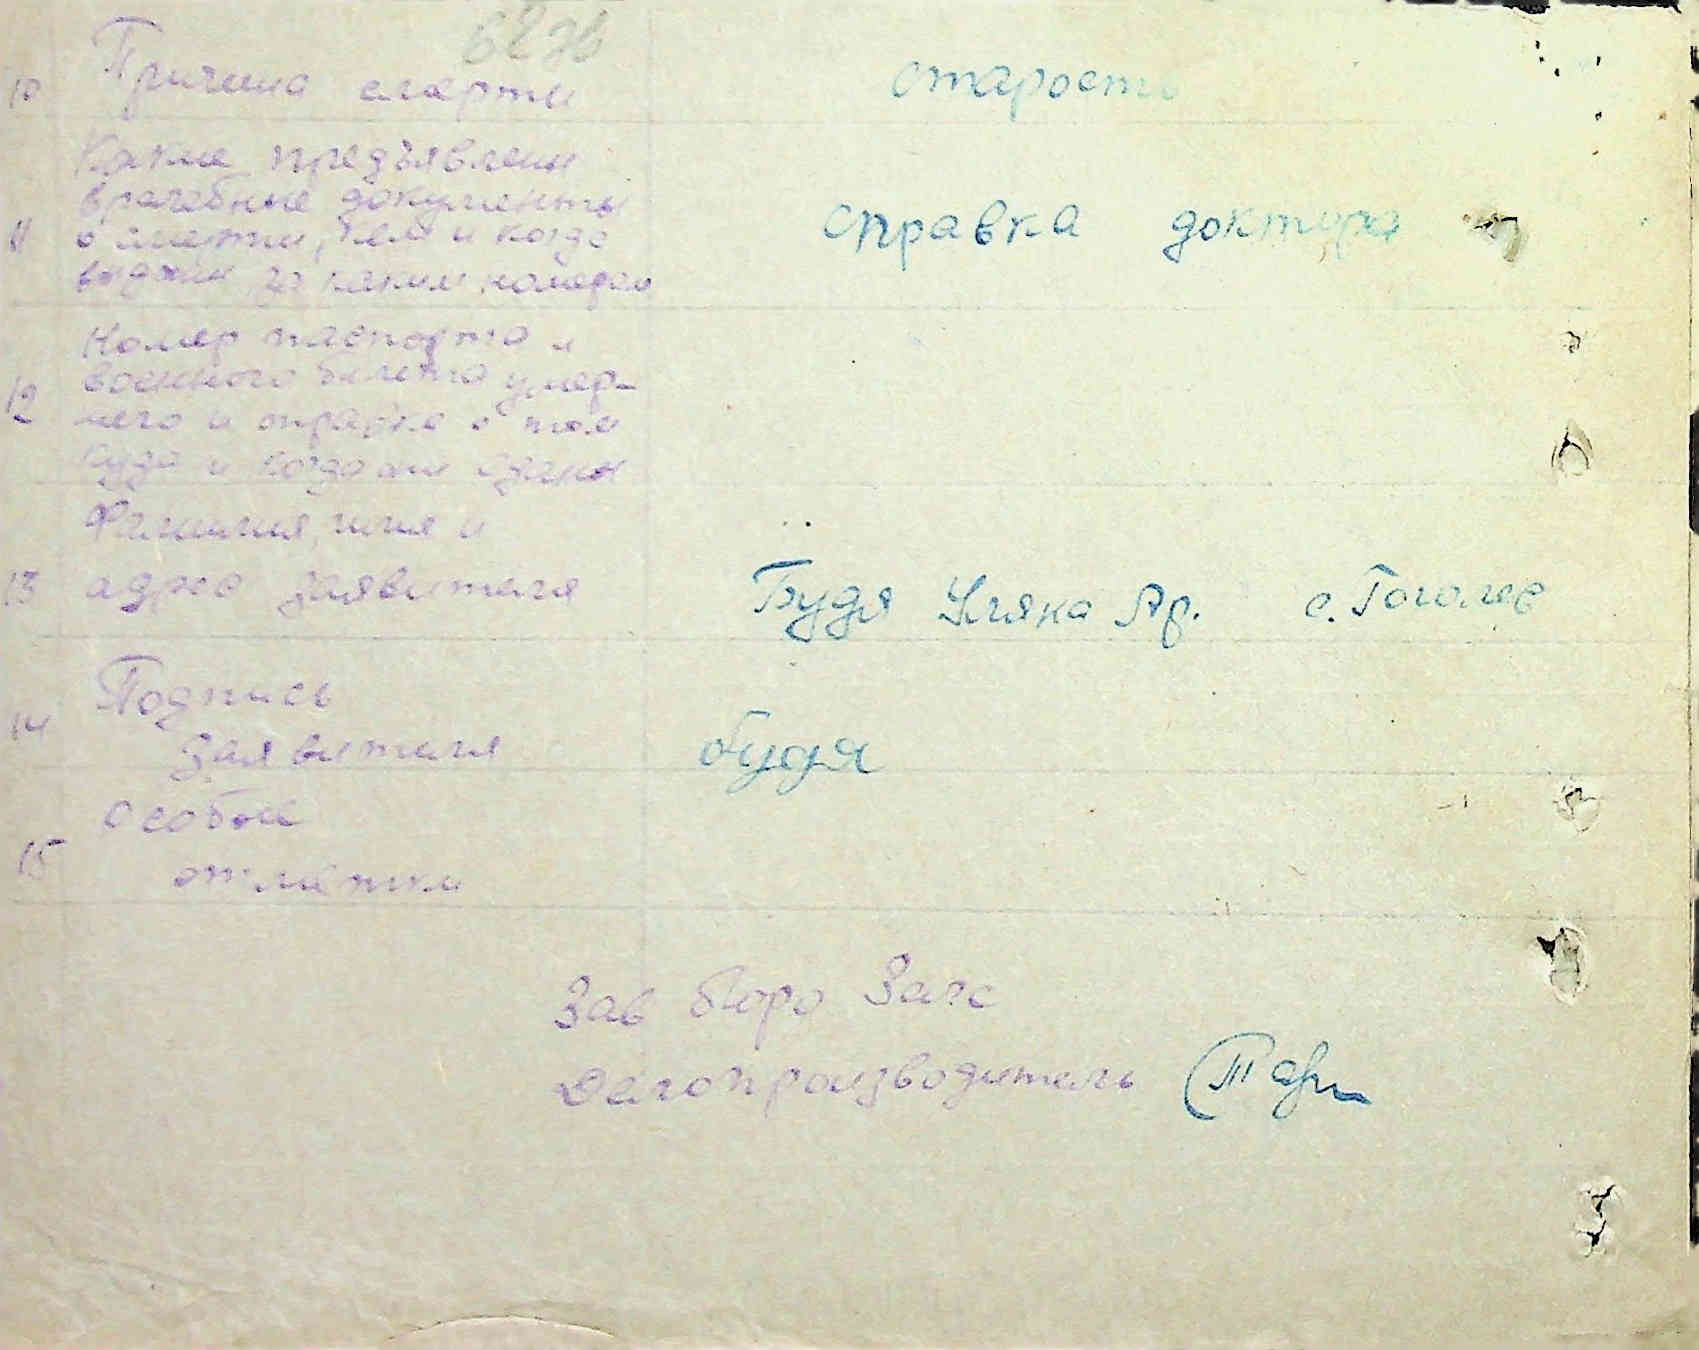 62зв
10 Причина смерти старость
Какие предъявлени
врачебные документы
11 о смерти, кем и когда справка доктора
выдани за каким номером
Номер паспорта и
военного билета умер-
12 шего и справка о том
куда и когда они сданы
Фамилия, имя и
13 адрес заявителя Будя Уляна Ар. с. Гоголев
Подпись
14 заявителя будя
Особые
15 отметки
Зав бюро Загс
Делопроизводитель